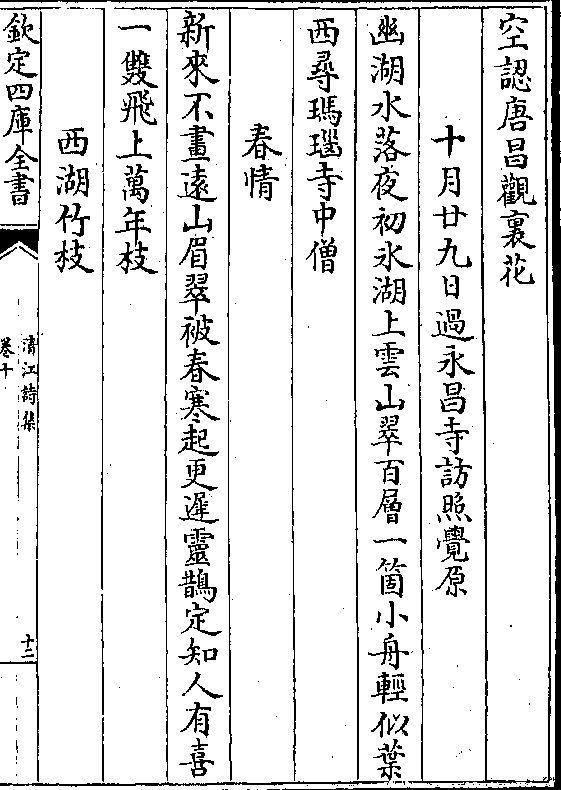 空認唐昌觀裏花
十月廿九日過永昌寺訪照覺原
幽湖水落夜初氷湖上雲山翠百層一箇小舟輕似葉
西尋瑪瑙寺中僧
春情
新來不畫遠山眉翠被春寒起更遲靈鵲定知人有喜
一雙飛上萬年枝
西湖竹枝
欽定四庫全書
清江詩集
卷十
十二